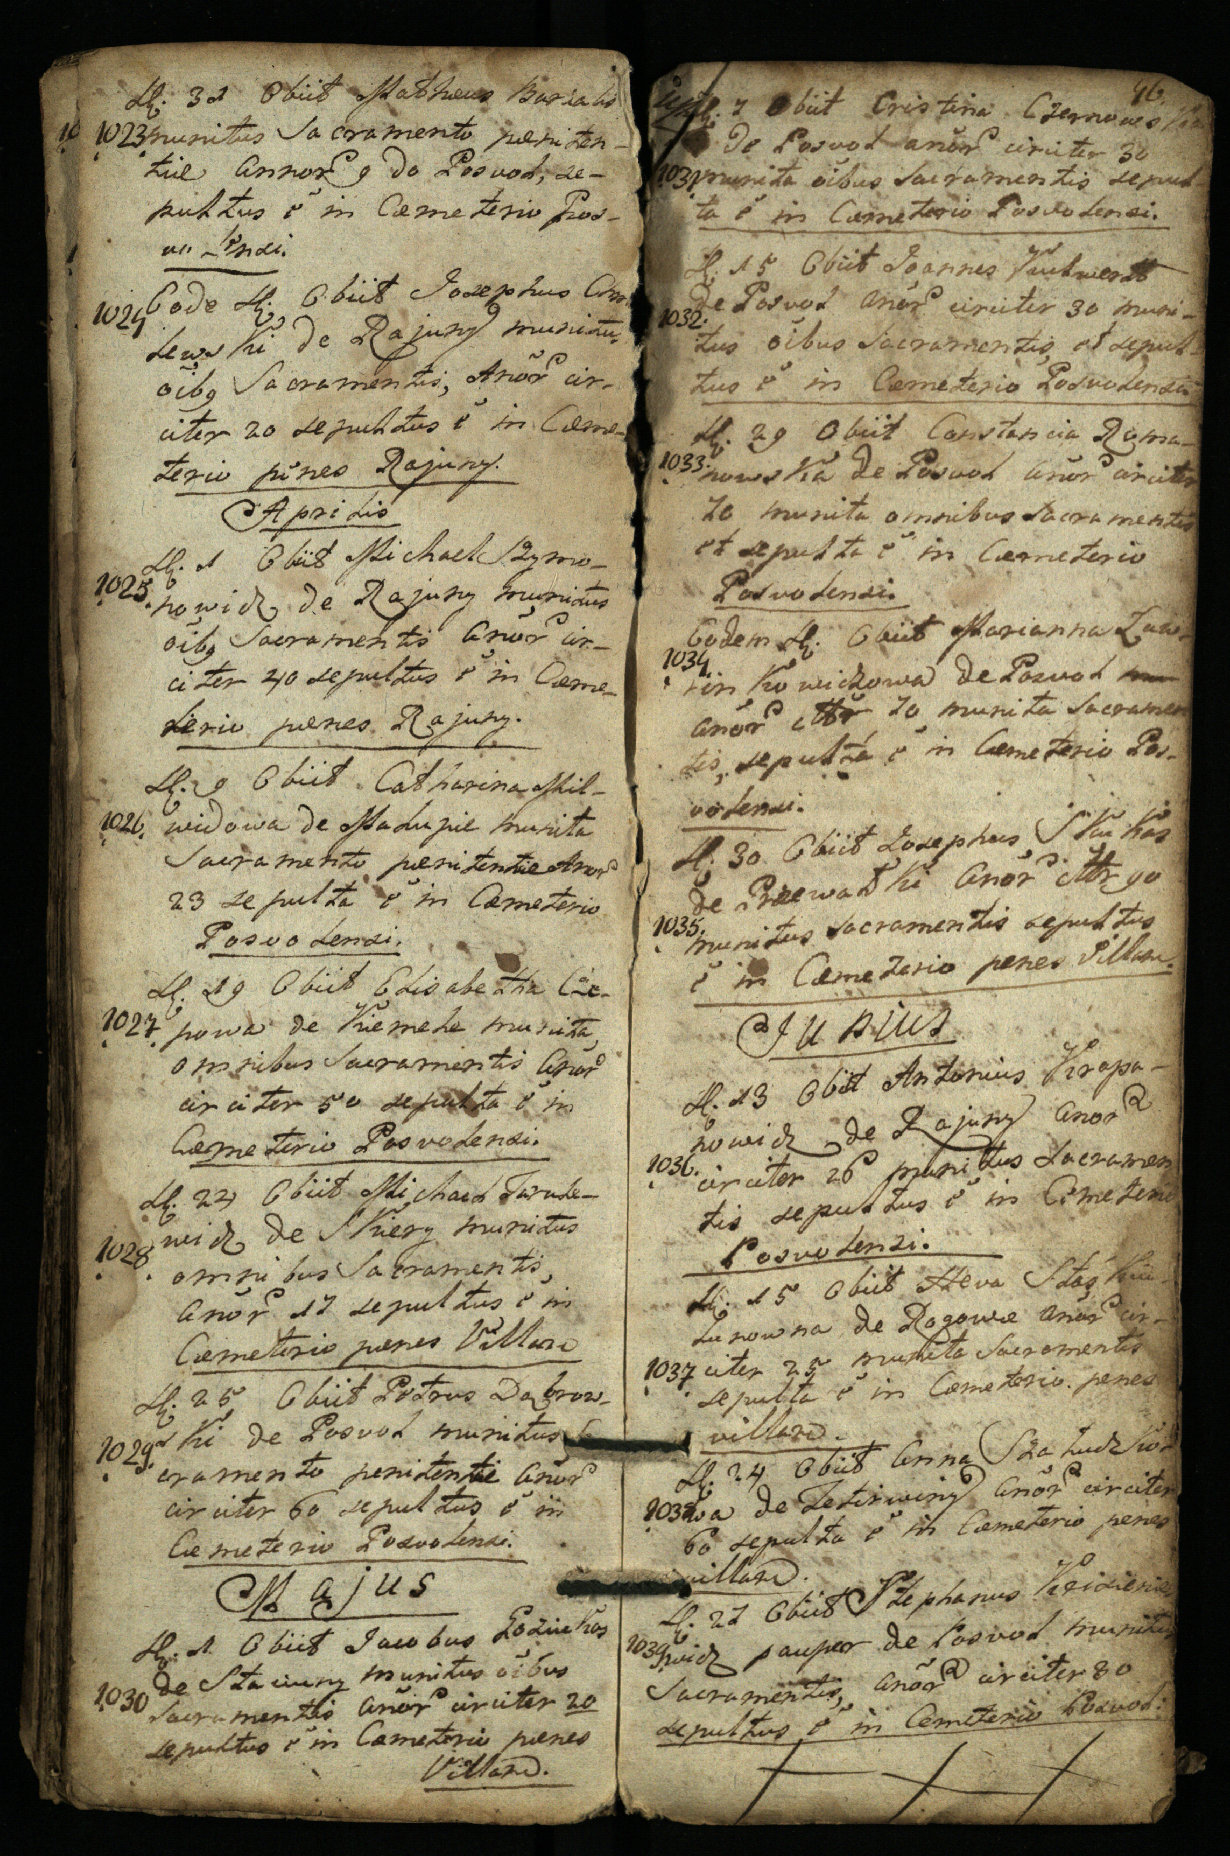 D. 31 Obiit Matheus
1023. munitus Sacramento peniten-
tiæ Annor 9 de Posvol, se-
pultus ē in Cæmeterio Pos-
Eode D. Obiit Josephus
1024 lewski de Rajuny munitus
oibq Sacramentis, Anōr cir-
citer 20 sepultus ē in Cæme-
terio pēnes Rajuny.
Aprilis
D. 1 Obiit Michael Szymo-
1025. nowicz de Rajuny munitus
oibq Sacramentis Anōr cir-
citer 40 sepultus ē in Cæme-
terio penes Rajuny.
D. 9 Obiit Catharina Mil-
1026. widowa de Madupie munita
Sacramento penitentiæ Anor
23 sepulta ē in Cæmeterio
Posvolensi.
D. 19 Obiit Elisabetha Cze-
1027. powa de Kiemele munita
omnibus Sacramentis Anōr
circiter 50 sepulta ē in
Cæmeterio Posvolensi.
D. 22 Obiit Michael
1028. wicz de Skiery munitus
omnibus Sacramentis,
Anōr 17 sepultus ē in
Cæmeterio penes Villam
D. 25 Obiit Petrus Dabrow-
1029. ski de Posvol munitus
cramento penitentie Anōr
circiter 60 sepultus ē in
Cæmeterio Posvolensi.
Majus
D. 1 Obiit Jacobus
de munitus oibus
1030 Sacramentis Anōr circiter 20
sepultus ē in Cæmeterio penes
Villam.
96.
D. 7 Obiit Cristina
de Posvol anōr circiter 30
1031 munita oibus Sacramentis sepul-
ta ē in Cæmeterio Posvolensi.
D. 15 Obiit Joannes
de Posvol Anōr circiter 30 muni-
1032.
tus oibus Sacramentis et sepul-
tus ē in Cæmeterio Posvolensi
D. 29 Obiit Constancia Roma-
1033. nowska de Posvol Anōr circiter
70 munita omnibus Sacramentis
et sepulta ē in Cæmeterio
Posvolensi.
Eodem D. Obiit Marianna Law-
1034. rinkowiczowa de Posvol
anōr 70 munita Sacramen
tis, sepulta ē in Cæmeterio Pos-
volensi.
D. 30 Obiit Josephus
de Anōr 90
1035. munitus Sacramentis sepultus
ē in Cæmeterio penes Villam.
Junius
D. 13 Obiit Antonius Krapa-
nowicz de Rajuny Anōr
1036. circiter 26 munitus Sacramen
tis sepultus ē in Cemeterio
Posvolensi.
D. 15 Obiit Heva
de Rogowe Anōr cir-
1037 citer 25 munita Sacramentis
sepulta ē in Cæmeterio penes
villam.
D. 24 Obiit Anna
1038 de Anōr circiter
60 sepulta ē in Cæmeterio penes
villam.
D. 27 Obiit Stephanus
1039 wicz pauper de Posvol munitus
Sacramentis, Anōr circiter 80
sepultus ē in Cemeterio Posvol: